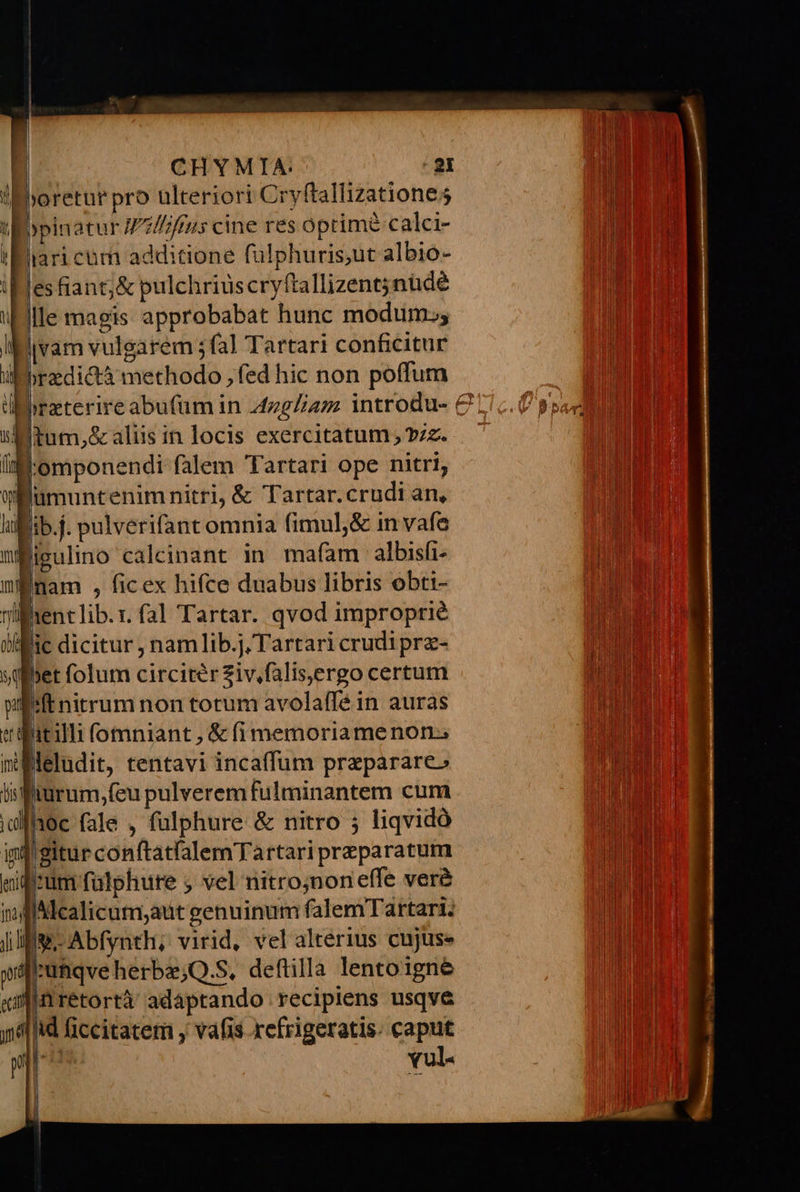 CHYMIA. 21
poretur pro ulteriori Cryſtallizatione;
opinatur Willifius cine res optimè calci-
nari cum additione ſulphuris,ut albio-
res fiant,& pulchriùs cryſtallizent; nudè
ille magis approbabat hunc modum,
qvam vulgarem ; ſal Tartari conficitur
prædictâ methodo , ſed hic non poſſum
præterire abuſum in Angliam introdu-
ctum,& aliis in locis exercitatum, viz.
componendi ſalem Tartari ope nitri,
ſumunt enim nitri, & Tartar. crudi an.
lib.j. pulveriſant omnia ſimul,& in vaſe
figulino calcinant in maſam albisſi-
mam , ſic ex hiſce duabus libris obti-
nent lib.1. ſal Tartar. qvod impropriè
ſic dicitur , nam lib.j. Tartari crudi præ-
bet ſolum circitèr ℥iv.ſalis,ergo certum
eſt nitrum non totum avolaſſe in auras
ut illi ſomniant , & ſi memoria me non
deludit, tentavi incaſſum præparare
aurum,ſeu pulverem fulminantem cum
hoc ſale , ſulphure & nitro ; liqvidò
igitur conſtat ſalem Tartari præparatum
cum ſulphure , vel nitro,non eſſe verè
Alcalicum,aut genuinum ſalem Tartari.
Abſynth, virid, vel alterius cujus-
cunqve herbæ,Q.S. deſtilla lento igne
in retortâ adaptando recipiens usqve
ad ſiccitatem , vaſis refrigeratis. caput
vul-